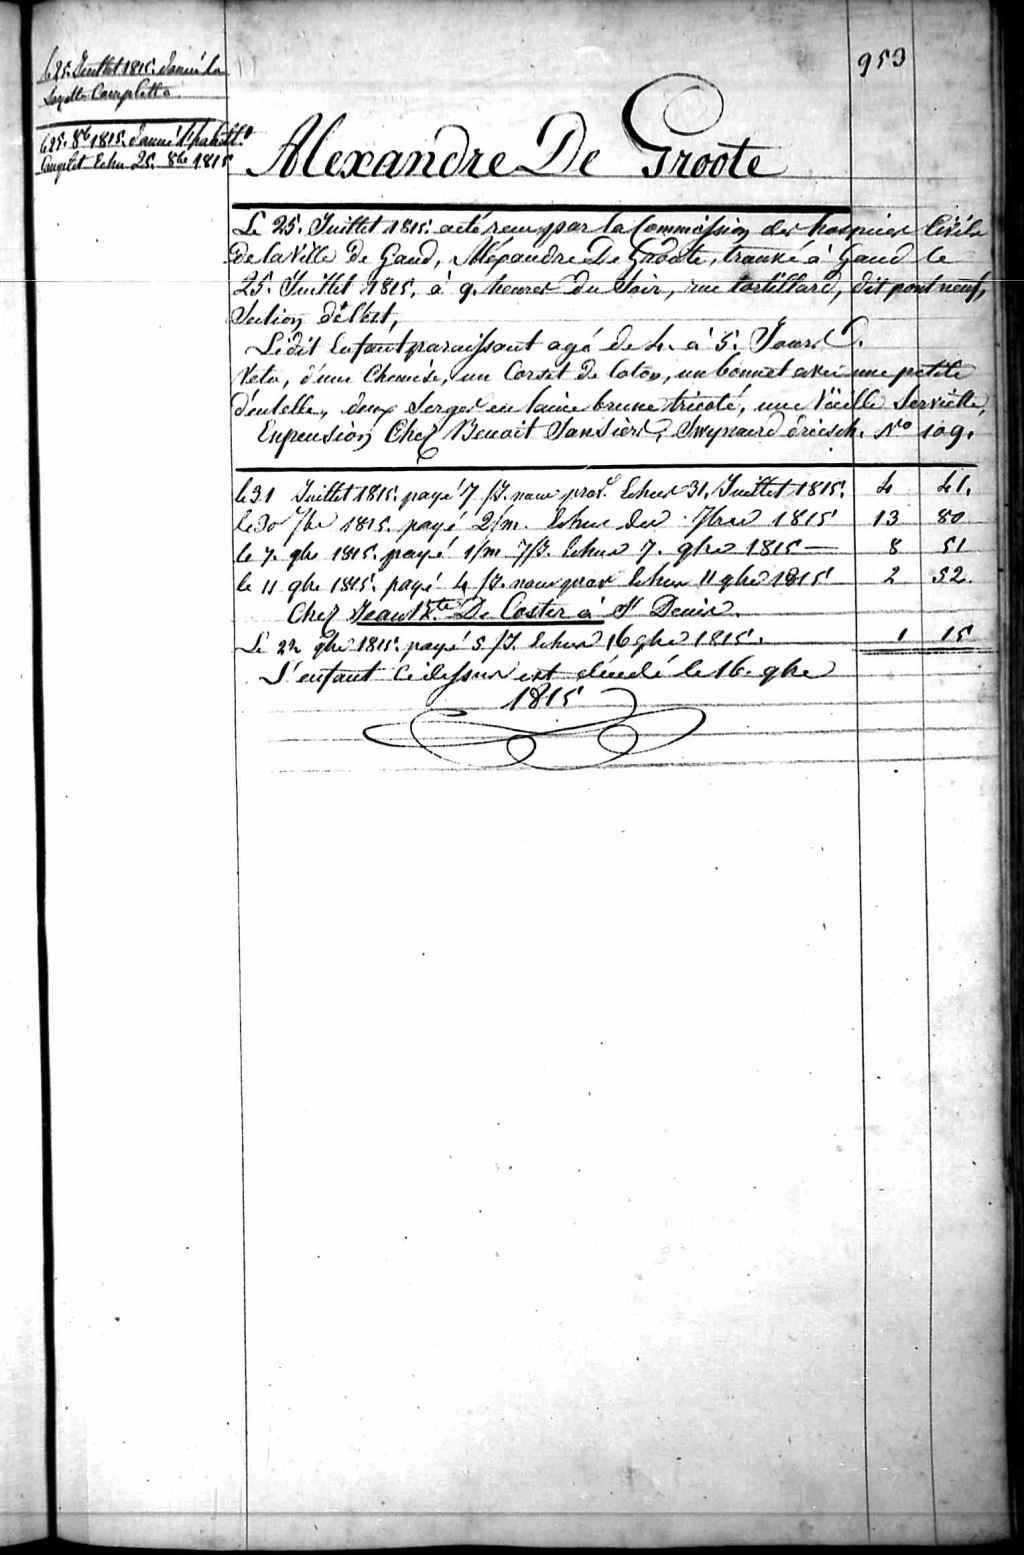 953
le 25. Juillet 1815. donné la
Layette Complette
le 25. 8bre 1815. donné 1r habillt
Complet Echu 25. 8bre 1815
Alexandre De Groote
Le 25. Juillet 1815. a eté recu par la Commission des hospices Civils
de la Ville de Gand, Alexandre De Groote, trouvé à Gand le
25. Juillet 1815. à 9. heures du Soir, rue tortillard, dit pont neuf,
Section de l'Est,
Le dit Enfant paraissant agé de 4. à 5. Jours.
Vetu, d'une Chemise, un Corset de coton, un bonnet avec une petite
dentelle, deux Serges en laine brune tricoté, une Vieille Serviette,
En pension Chez Benoit Sansiers, Swynaerd driesch. No 109.
le 31 Juillet 1815. payé 7/J. nour prov. Echus 31. Juillet 1815. 4 41.
le 30 7bre 1815. payé 2/m. Echus du 7bre 1815 13 80
le 7. 9bre 1815. payé 1/m 7/J. Echus 7. 9bre 1815 — 8 51
le 11 9bre 1815. payé 4/J. nour prov Echus 11 9bre 1815 2 52.
Chez Jean Bte De Coster à St Denis.
Le 22 9bre 1815. payé 5/J. Echus 16 9bre 1815. 1 15
L'enfant Ci dessus est décédé le 16. 9bre
1815